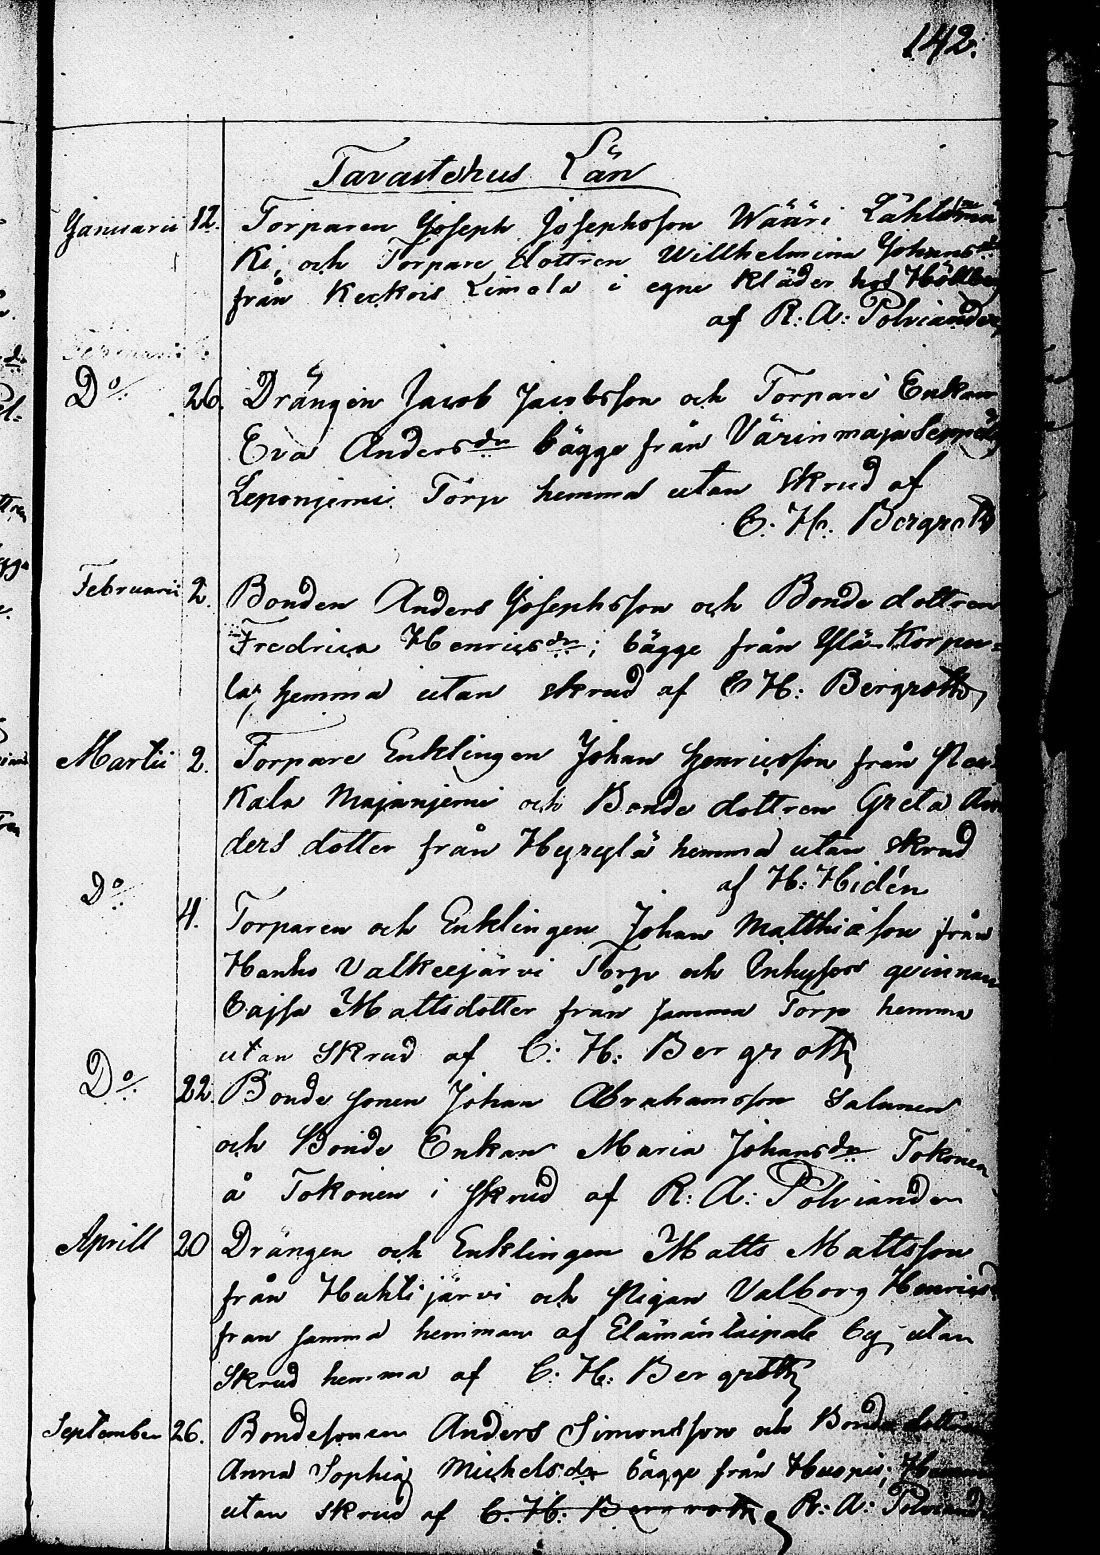 142.
Tavastehus Län
Januarii 12. Torparen Joseph Josephsson Wääri Lähdemä
Ki, och Torpare dottren Willhelmina Johans dr
från Keckois Limola i egne Kläder hos
af R: A: Polviander
Do/. 26. Drängen Jacob Jacobsson och Torpare Enkan
Eva Anders dr bägge från Värinmaja Seppälä
Leponjemi Torp hemma utan skrud af
C. H. Bergroth
Februarii 2. Bonden Anders Josephsson och Bonde dottren
Fredrica Henrics dr; bägge från Ylä-Korpu=
la, hemma utan skrud af C H: Bergroth,
Martii 2. Torpare Enklingen Johan Henricsson från
Kala Majanjemi och Bonde dottren Greta An
ders dotter från Hyrylä hemma utan skrud
af H: Hidén
Do/. 4. Torparen och Enklingen Johan Matthiæson från
Hanho Valkeejärvi Torp och Inhyses qvinnan
Cajsa Mattsdotter från samma Torp hemma
utan Skrud af C: H: Bergroth
Do/. 22. Bonde sonen Johan Abrahamsson Salunen
och Bonde Enkan Maria Johans dr Tokonen
å Tokonen i skrud af R: A: Polviander
Aprill 20 Drängen och Enklingen Matts Mattsson
från Huhtijärvi och Pigan Valborg Henricsd
fran samma hemman af Elämäntaipale by utan
Skrud hemma af C: H: Bergroth
September 26. Bondesonen Anders Simonsson och Bonde dottren
Anna Sophia Michels dr bägge från Huopis; Hemma
utan skrud af C: H: Bergroth, R: A: Polviand